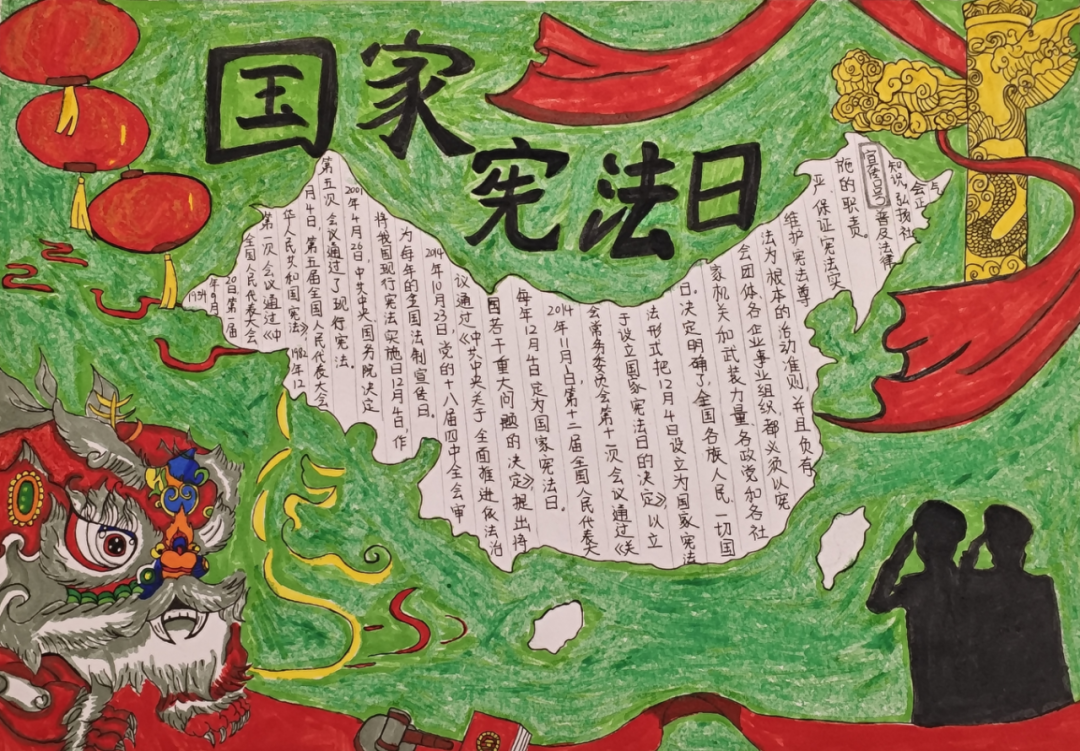 国家
宪法日
1954
年9月
20日第一届
全国人民代表大会
第一次会议通过《中
华人民共和国宪法》，1982年12
月4日，第五届全国人民代表大会
第五次会议通过了现行宪法。
2001年4月26日，中共中央、国务院决定
将我国现行宪法实施日12月4日，作
为每年的全国法制宣传日。
2014年10月23日，党的十八届四中全会审
议通过《中共中央关于全面推进依法治
国若干重大问题的决定》，提出将
每年12月4日定为国家宪法日。
2014年11月1日，第十二届全国人民代表大
会常务委员会第十一次会议通过《关
于设立国家宪法日的决定》，以立
法形式把12月4日设立为国家宪法
日。决定明确了，全国各族人民、一切国
家机关和武装力量、各政党和各社
会团体、各企业事业组织，都必须以宪
法为根本的活动准则，并且负有
维护宪法尊
严、保证宪法实
施的职责。
宣传口号 普及法律
知识，弘扬社
会正
气